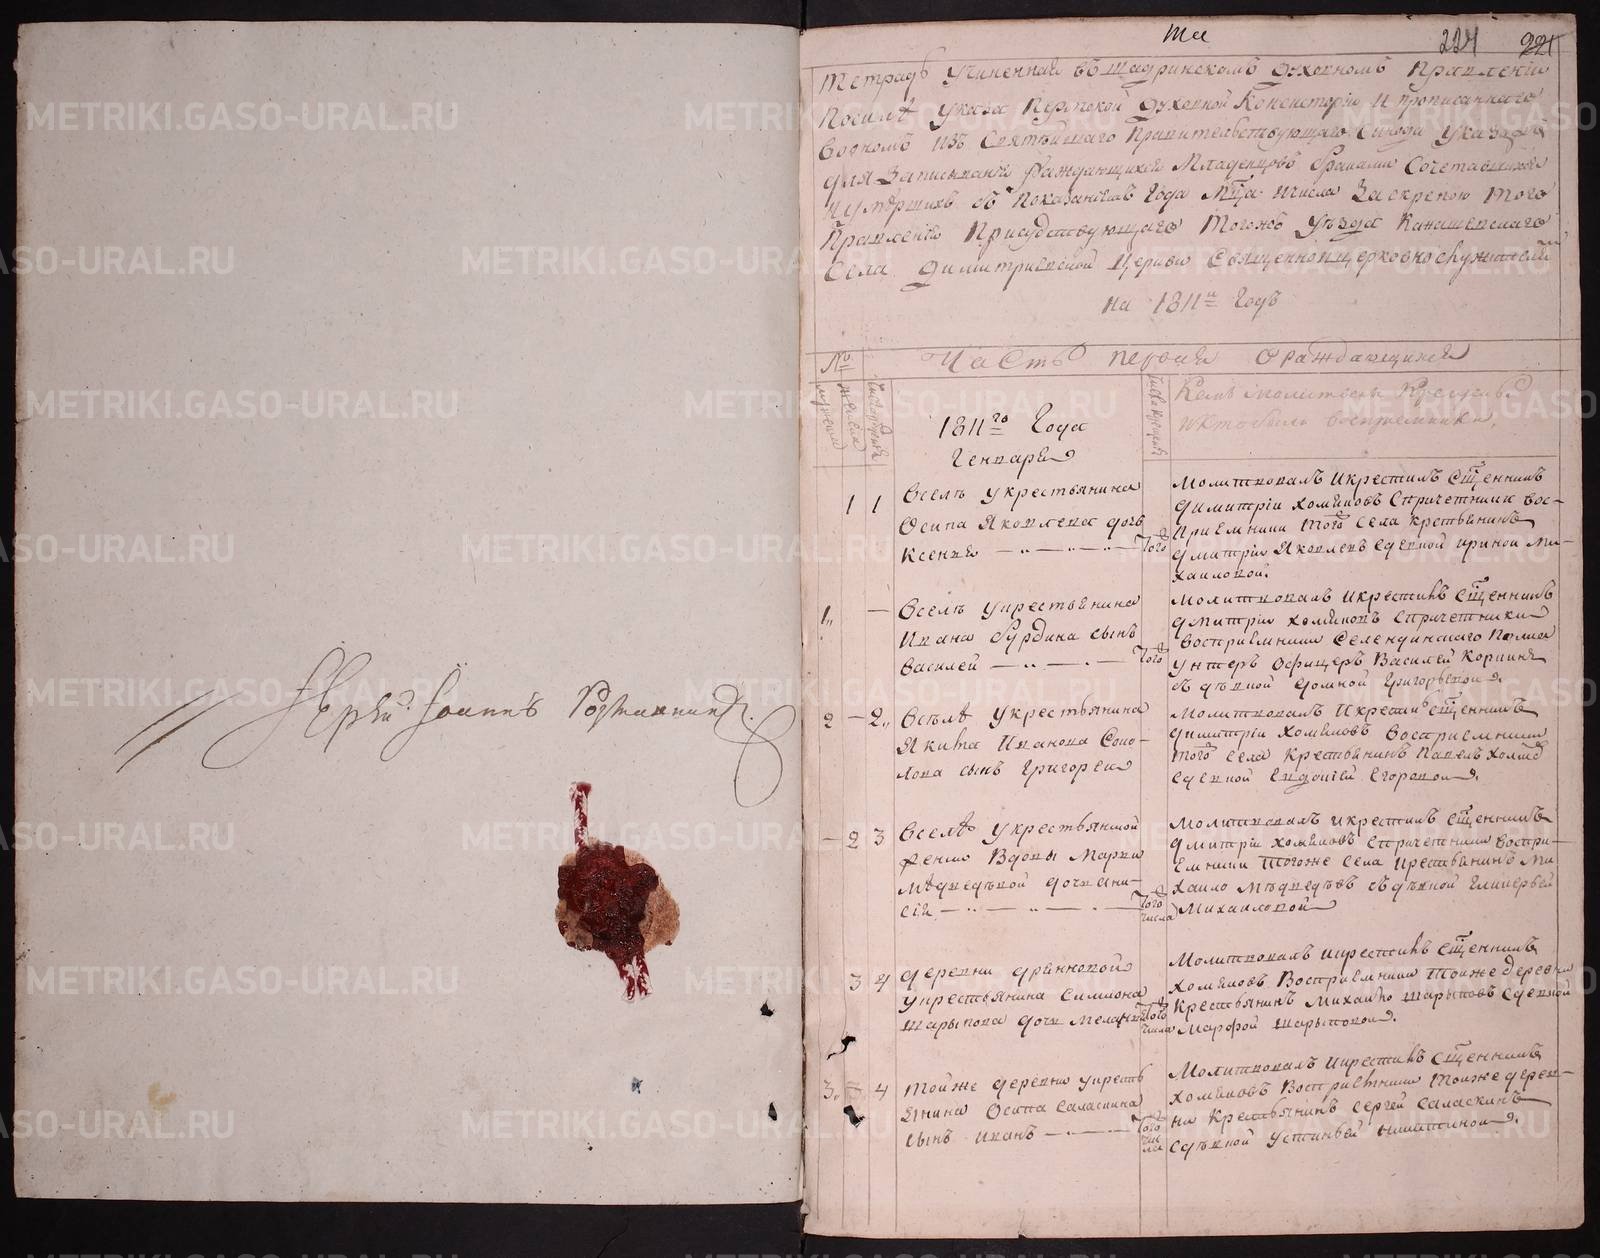 Іерей Іоаннъ
та
224 221
Тетрадь учиненная въ Шадринскомъ духовномъ Правленіи
посилѣ указа Пермской духовной Консисторіи и прописаннаго
во ономъ изъ Святѣйшаго Правительствующаго Синода указа
для записыванія раждающихся младенцовъ браками сочетавшихся
и умершихъ съ показаніемъ года мца и числа за скрепою того
Правленія присудствующаго тогожъ уѣзда Канашевскаго
села Димитріевской церкви священноицерковнослужителей
на 1811й годъ
№
Часть первая о раждающихся
мужеска
женска
Число рожденія
Число крещенія
Кемъ молитвенъ крещенъ
и кто были восприемники,
1811го Года
Генваря
1 1
Всели у крестьянина
Осипа Яковлева дочь
Ксения
Того
Молитвовалъ и крестилъ сщенникъ
Димитрій Хомяковъ с причетники вос-
приемники того села крестьянинъ
Дмитрій Яковлевъ с девкой Ириной Ми-
хаиловой.
1, —
Всели у крестьянина
Ивана Бурдина сынъ
Василей
Того
Молитвовалъ и крестилъ сщенникъ
Дмитрій Хомяковъ с причетники
восприемники Селенгинскаго полка
унтеръ офицеръ Василей Коркинъ
съ дѣвкой Домной Григорьевой.
2 — 2,
Вселѣ у крестьянина
Якима Иванова Соко-
лова сынъ Григорей
Молитвовалъ и крестилъ сщенникъ
Димитрій Хомяковъ восприемники
того села крестьянинъ Павелъ
с девкой Евдокіей Егоровой.
— 2 3
Вселѣ у крестьянской
женки вдовы Марьи
Мѣдведѣвой дочь Ани-
сія
Того числа
Молитвовалъ и крестилъ сщенникъ
Дмитрій Хомяковъ с причетники воспри-
емники тогоже села крестьянинъ Ми
хаило Мѣдведѣвъ съ дѣвкой Гликерьей
Михаиловой
3 4
Деревни Дрянновой
у крестьянина Симиона
Шарыпова дочь Меланья
Того числа
Молитвовалъ и крестилъ сщенникъ
Хомяковъ восприемники тойже деревни
крестьянинъ Михайло Шарыповъ с девкой
Марфой Шарыповой.
3, 4
Тойже деревни у кресть
янина Осипа Саласкина
сынъ Иванъ
Того числа
Молитвовалъ и крестилъ сщенникъ
Хомяковъ восприемники тойже дерев-
ни крестьянинъ Сергей Саласкинъ
с дѣвкой Устиньей Никитиной.
METRIKI.GASO-URAL.RU